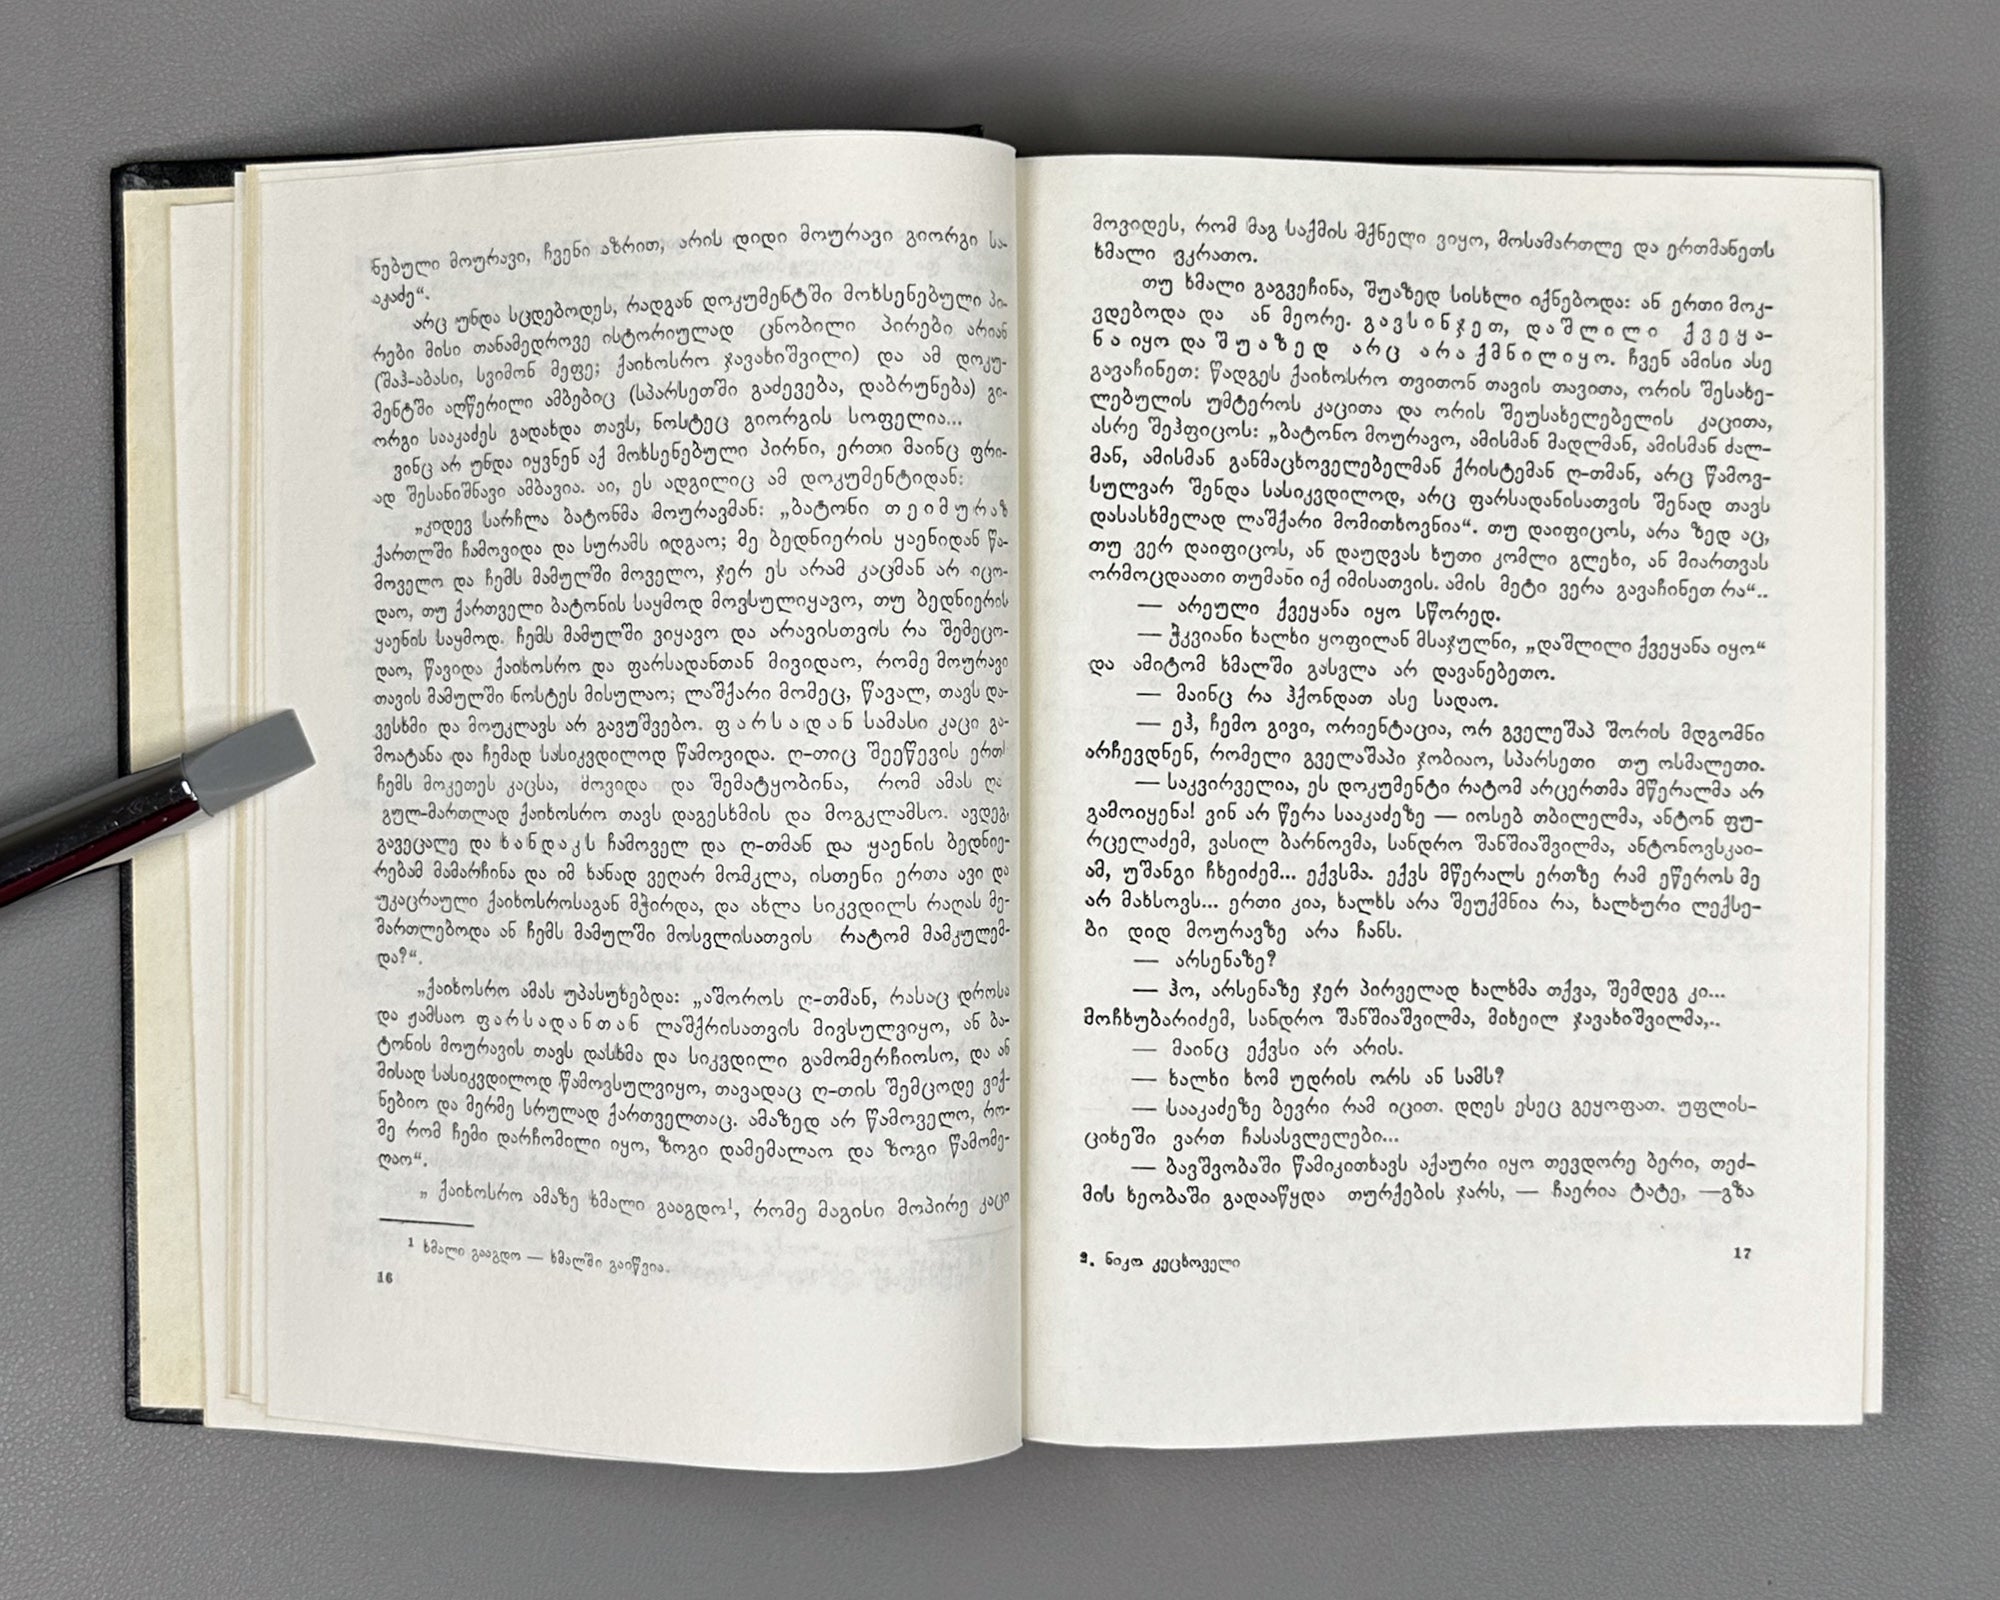 ნებული მოურავი, ჩვენი აზრით, არის დიდი მოურავი გიორგი სა-
აკაძე“.
არც უნდა სცდებოდეს, რადგან დოკუმენტში მოხსენებული პი-
რები მისი თანამედროვე ისტორიულად ცნობილი პირები არიან
(შაჰ-აბასი, სვიმონ მეფე; ქაიხოსრო ჯავახიშვილი) და ამ დოკუ-
მენტში აღწერილი ამბებიც (სპარსეთში გაძევება, დაბრუნება) გი-
ორგი სააკაძეს გადახდა თავს, ნოსტეც გიორგის სოფელია...
ვინც არ უნდა იყვნენ აქ მოხსენებული პირნი, ერთი მაინც ფრი-
ად შესანიშნავი ამბავია. აი, ეს ადგილიც ამ დოკუმენტიდან:
„კიდევ სარჩლა ბატონმა მოურავმან: „ბატონი თეიმურაზ
ქართლში ჩამოვიდა და სურამს იდგაო; მე ბედნიერის ყაენიდან წა-
მოველო და ჩემს მამულში მოველო, ჯერ ეს არამ კაცმან არ იცო-
დაო, თუ ქართველი ბატონის საყმოდ მოვსულიყავო, თუ ბედნიერის
ყაენის საყმოდ. ჩემს მამულში ვიყავო და არავისთვის რა შემეცო-
დაო, წავიდა ქაიხოსრო და ფარსადანთან მივიდაო, რომე მოურავი
თავის მამულში ნოსტეს მისულაო; ლაშქარი მომეც, წავალ, თავს და-
ვესხმი და მოუკლავს არ გავუშვებო. ფარსადან სამასი კაცი გა-
მოატანა და ჩემად სასიკვდილოდ წამოვიდა. ღ-თიც შეეწევის ერთ
ჩემს მოკეთეს კაცსა, მოვიდა და შემატყობინა, რომ ამას ღა
გულ-მართლად ქაიხოსრო თავს დაგესხმის და მოგკლამსო. ავდეგ,
გავეცალე და ხანდაკს ჩამოველ და ღ-თმან და ყაენის ბედნიე-
რებამ მამარჩინა და იმ ხანად ვეღარ მომკლა, ისთენი ერთა ავი და
უკაცრაული ქაიხოსროსაგან მჭირდა, და ახლა სიკვდილს რაღას მე-
მართლებოდა ან ჩემს მამულში მოსვლისათვის რატომ მამკულემ-
და?“.
„ქაიხოსრო ამას უპასუხებდა: „აშოროს ღ-თმან, რასაც დროსა
და ჟამსაო ფარსადანთან ლაშქრისათვის მივსულვიყო, ან ბა-
ტონის მოურავის თავს დასხმა და სიკვდილი გამომერჩიოსო, და ან
მისად სასიკვდილოდ წამოვსულვიყო, თავადაც ღ-თის შემცოდე ვიქ-
ნებიო და მერმე სრულად ქართველთაც. ამაზედ არ წამოველო, რო-
მე რომ ჩემი დარჩომილი იყო, ზოგი დამემალაო და ზოგი წამომე-
ღაო“.
„ ქაიხოსრო ამაზე ხმალი გააგდო¹, რომე მაგისი მოპირე კაცი
¹ ხმალი გააგდო — ხმალში გაიწვია.
16
მოვიდეს, რომ მაგ საქმის მქნელი ვიყო, მოსამართლე და ერთმანეთს
ხმალი ვკრათო.
თუ ხმალი გაგვეჩინა, შუაზედ სისხლი იქნებოდა: ან ერთი მოკ-
ვდებოდა და ან მეორე. გავსინჯეთ, დაშლილი ქვეყა-
ნა იყო და შუაზედ არც არა ქმნილიყო. ჩვენ ამისი ასე
გავაჩინეთ: წადგეს ქაიხოსრო თვითონ თავის თავითა, ორის შესახე-
ლებულის უმტეროს კაცითა და ორის შეუსახელებელის კაცითა,
ასრე შეჰფიცოს: „ბატონო მოურავო, ამისმან მადლმან, ამისმან ძალ-
მან, ამისმან განმაცხოველებელმან ქრისტემან ღ-თმან, არც წამოვ-
სულვარ შენდა სასიკვდილოდ, არც ფარსადანისათვის შენად თავს
დასასხმელად ლაშქარი მომითხოვნია“. თუ დაიფიცოს, არა ზედ აც,
თუ ვერ დაიფიცოს, ან დაუდვას ხუთი კომლი გლეხი, ან მიართვას
ორმოცდაათი თუმანი იქ იმისათვის. ამის მეტი ვერა გავაჩინეთ რა“..
— არეული ქვეყანა იყო სწორედ.
— ჭკვიანი ხალხი ყოფილან მსაჯულნი, „დაშლილი ქვეყანა იყო“
და ამიტომ ხმალში გასვლა არ დავანებეთო.
— მაინც რა ჰქონდათ ასე სადაო.
— ეჰ, ჩემო გივი, ორიენტაცია, ორ გველეშაპ შორის მდგომნი
არჩევდნენ, რომელი გველაშაპი ჯობიაო, სპარსეთი თუ ოსმალეთი.
— საკვირველია, ეს დოკუმენტი რატომ არცერთმა მწერალმა არ
გამოიყენა! ვინ არ წერა სააკაძეზე — იოსებ თბილელმა, ანტონ ფუ-
რცელაძემ, ვასილ ბარნოვმა, სანდრო შანშიაშვილმა, ანტონოვსკაი-
ამ, უშანგი ჩხეიძემ... ექვსმა. ექვს მწერალს ერთზე რამ ეწეროს მე
არ მახსოვს... ერთი კია, ხალხს არა შეუქმნია რა, ხალხური ლექსე-
ბი დიდ მოურავზე არა ჩანს.
— არსენაზე?
— ჰო, არსენაზე ჯერ პირველად ხალხმა თქვა, შემდეგ კი...
მოჩხუბარიძემ, სანდრო შანშიაშვილმა, მიხეილ ჯავახიშვილმა,..
— მაინც ექვსი არ არის.
— ხალხი ხომ უდრის ორს ან სამს?
— სააკაძეზე ბევრი რამ იცით. დღეს ესეც გეყოფათ. უფლის-
ციხეში ვართ ჩასასვლელები...
— ბავშვობაში წამიკითხავს აქაური იყო თევდორე ბერი, თეძ-
მის ხეობაში გადააწყდა თურქების ჯარს, — ჩაერია ტატე, —გზა
2. ნიკო კეცხოველი
17